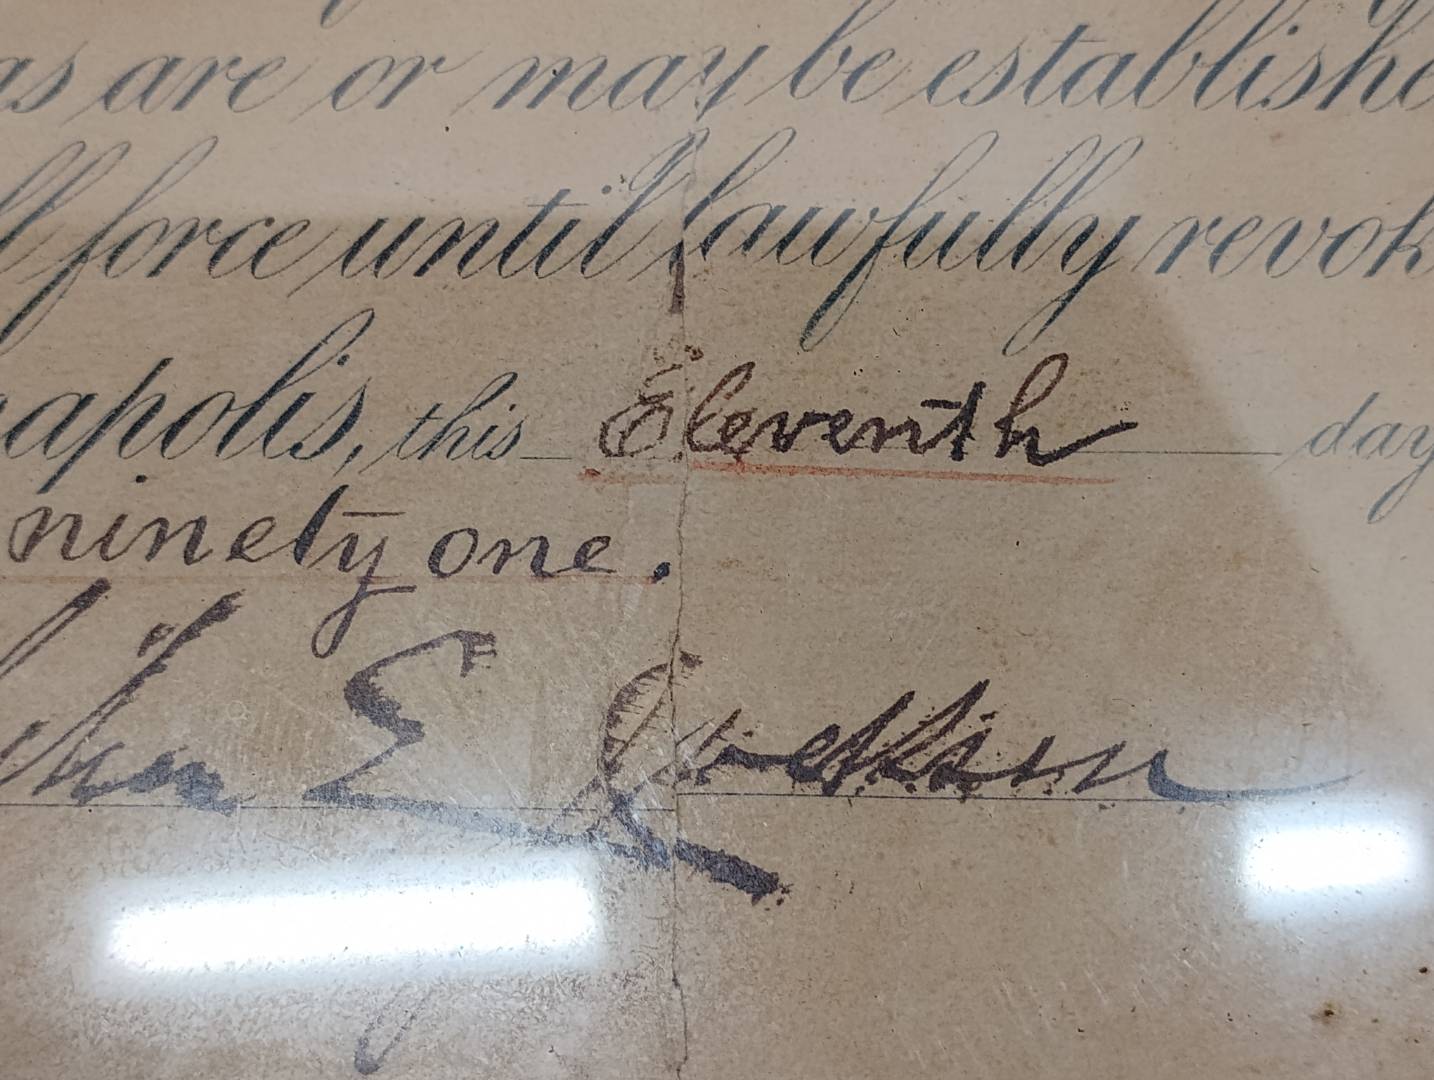 as are or may be establishe
ll force until lawfully revok
apolis, this Eleventh day
ninety one.